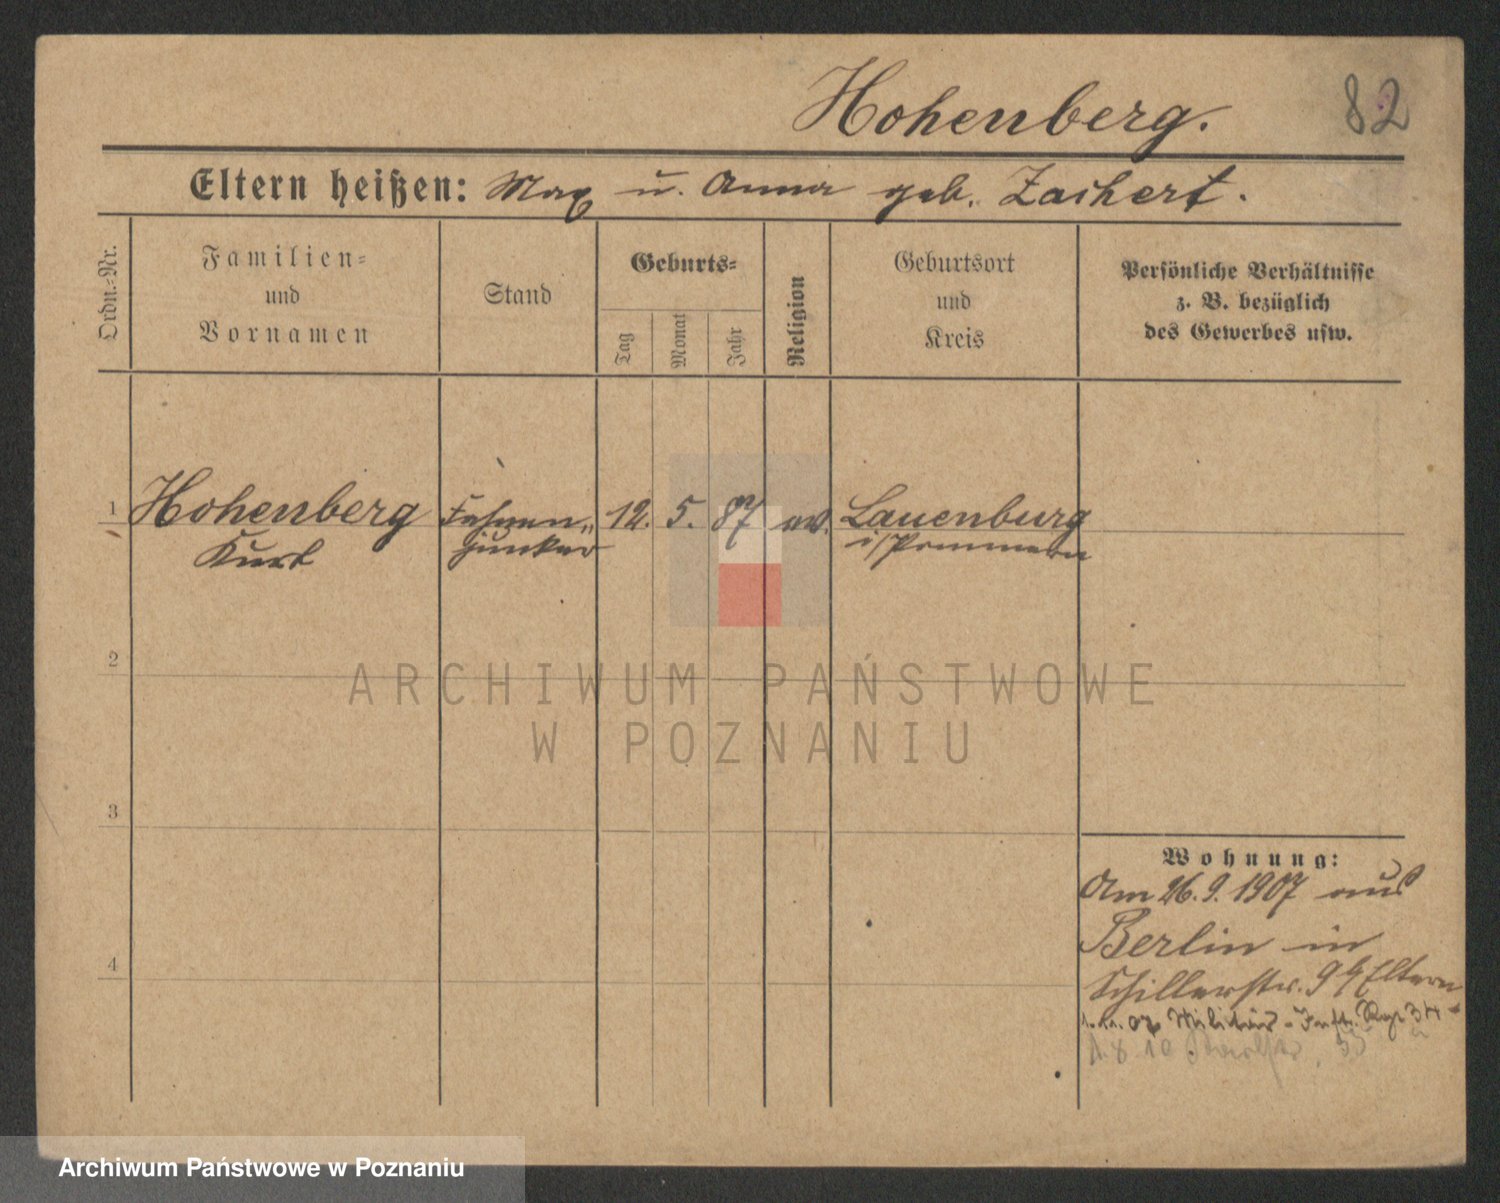 Hohenberg.
82
Eltern heißen: Max u. Anna geb. Zachert.
Ordn.-Nr.
Familien-
und
Vornamen
Stand
Geburts-
Tag
Monat
Jahr
Religion
Geburtsort
und
Kreis
Persönliche Verhältnisse
z. B. bezüglich
des Gewerbes usw.
1 Hohenberg Fahnen„ 12. 5. 87 ev. Lauenburg
Kurt junker i/Pommern
2
3
4
Wohnung:
Am 26.9.1907 aus
Berlin in
Schillerstr. 9 Eltern
1.11.07 Militär-Inft. Rgt 34
1.8.10
ARCHIWUM PAŃSTWOWE
W POZNANIU
Archiwum Państwowe w Poznaniu